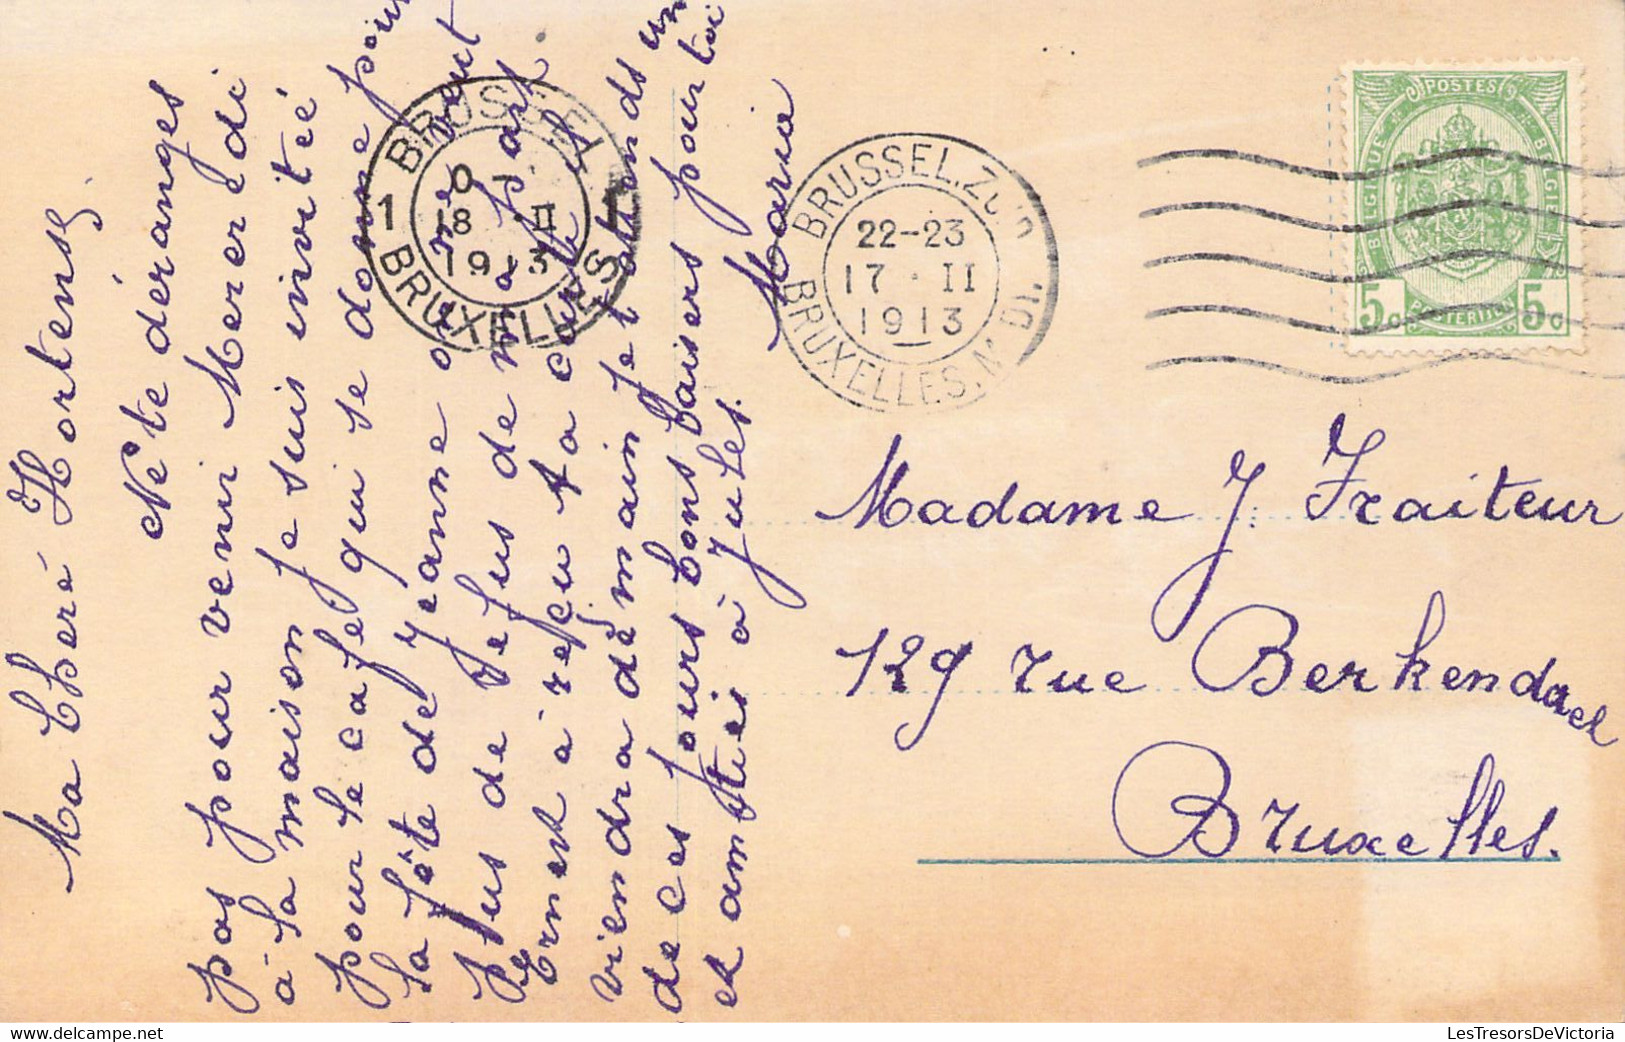 Ma Cheré Hortense
Ne te déranges
pas pour venir Mererédi
à la maison je suis invitéé
pour le cafe qui se donne pour
la fête de Jeanne
plus de refus de ma part.
Ernest à reçu ta carte
viendra démain je t'attends un
de ces jours bons baisers pour toi
et amitiei à Jules.
Maria
BRUSSEL
1 18 II 1
1913
BRUXELLES
BRUSSEL. Zuid
22-23
17 · II
1913
BRUXELLES. MIDI.
POSTES
BELGIQUE BELGIE
POSTERIJEN
5c 5c
Madame J. Traiteur
129 rue Berkendael
Bruxelles.
LesTresorsDeVictoria